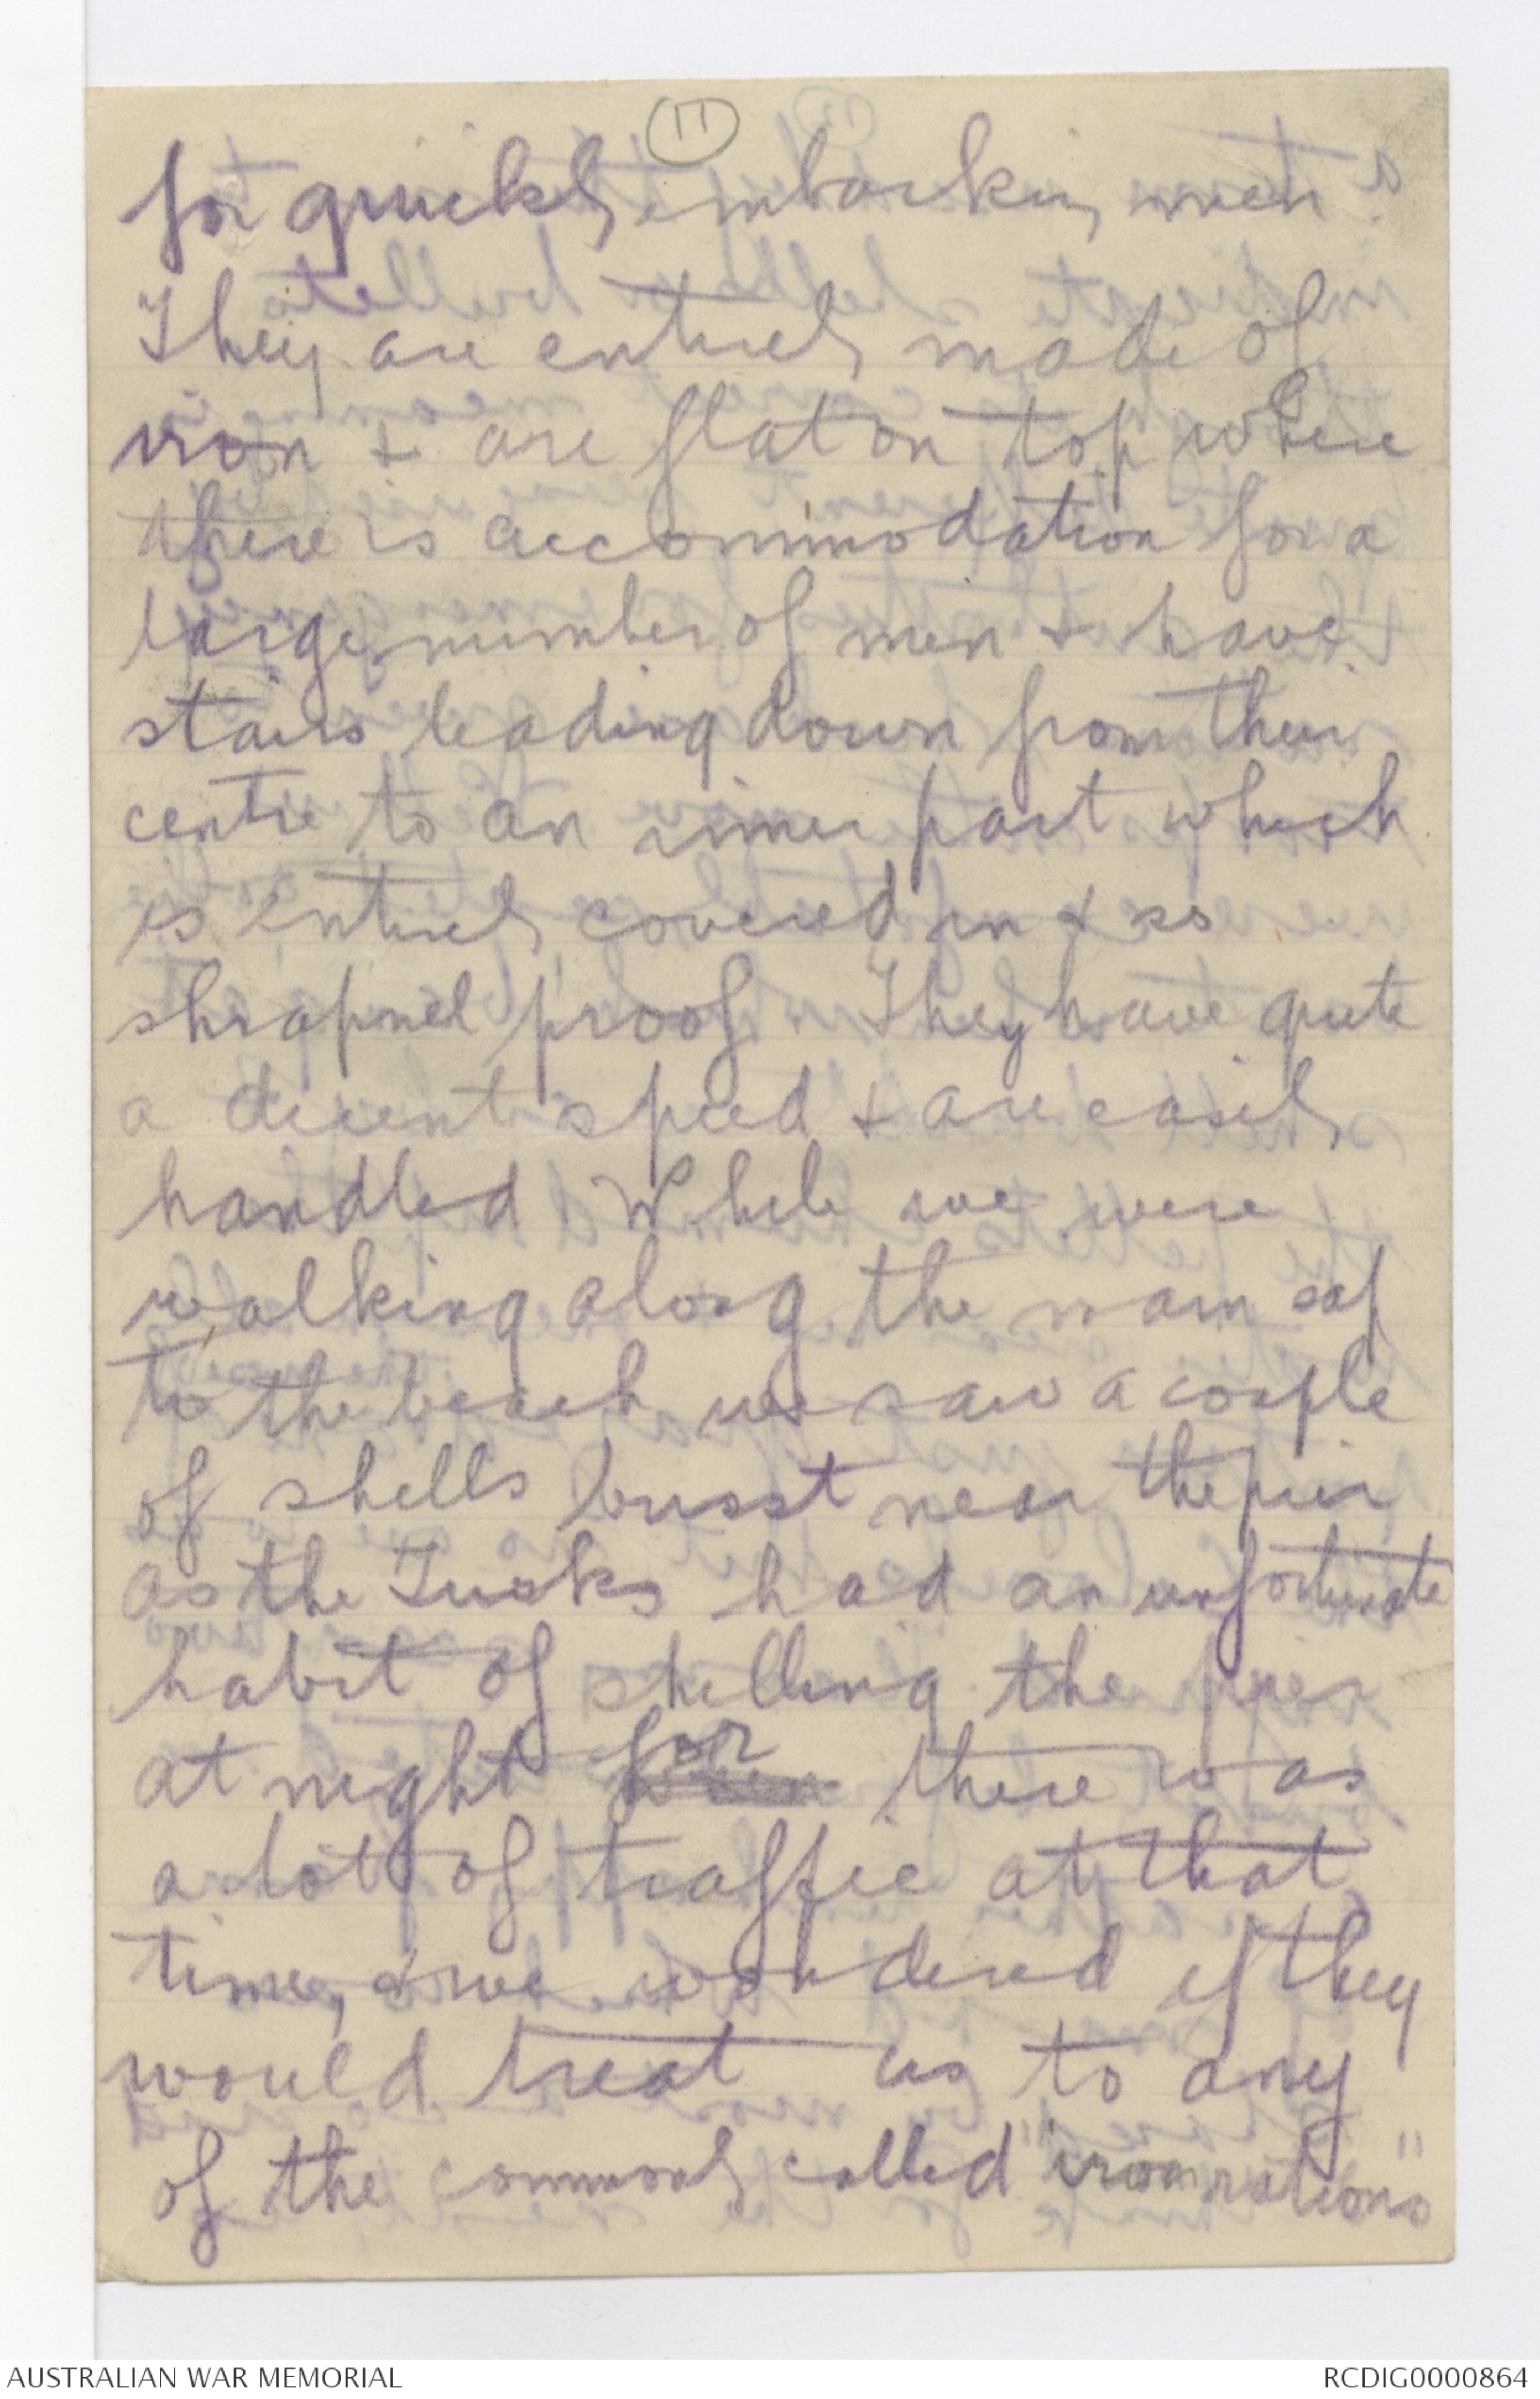 11
for quickly embarking men.
They are entirely made of
iron & are flat on top where
there is accommodation for a
large number of men & have
stairs leading down from their
centre to an inner part which
is entirely covered in & is
shrapnel proof. They have quite
a decent speed & are easily
handled. While we were
walking along the main sap
to the beach we saw a couple
of shells burst near the pier
as the Turks had an unfortunate
habit of shelling the pier
at night for there was
a lot of traffic at that
time, & we wondered if they
would treat us to any
of the commonly called "iron rations"
AUSTRALIAN WAR MEMORIAL
RCDIG0000864